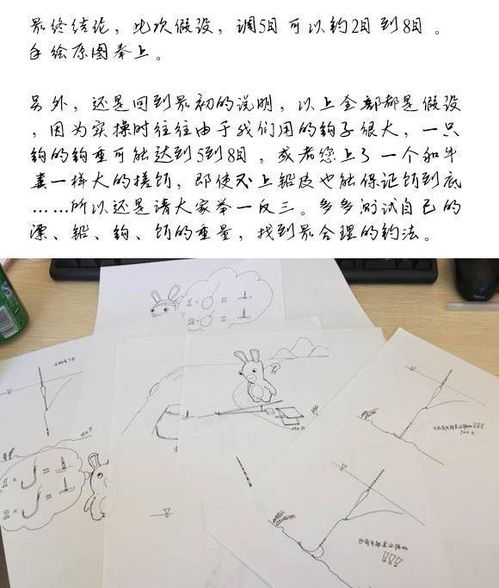 最终结论，此次假设，调5目可以钓2目到8目。
手绘原图奉上。
另外，还是回到最初的说明，以上全部都是假设
，因为实操时往往由于我们用的钩子很大，一只
钩的钩重可能达到5到8目，或者您上了一个和牛
粪一样大的搓饵，即使不上铅皮也能保证饵到底
……所以还是请大家举一反三。多多测试自己的
漂、铅、钩、饵的重量，找到最合理的钓法。
1×
=
2×
=
1×
=
2×
=